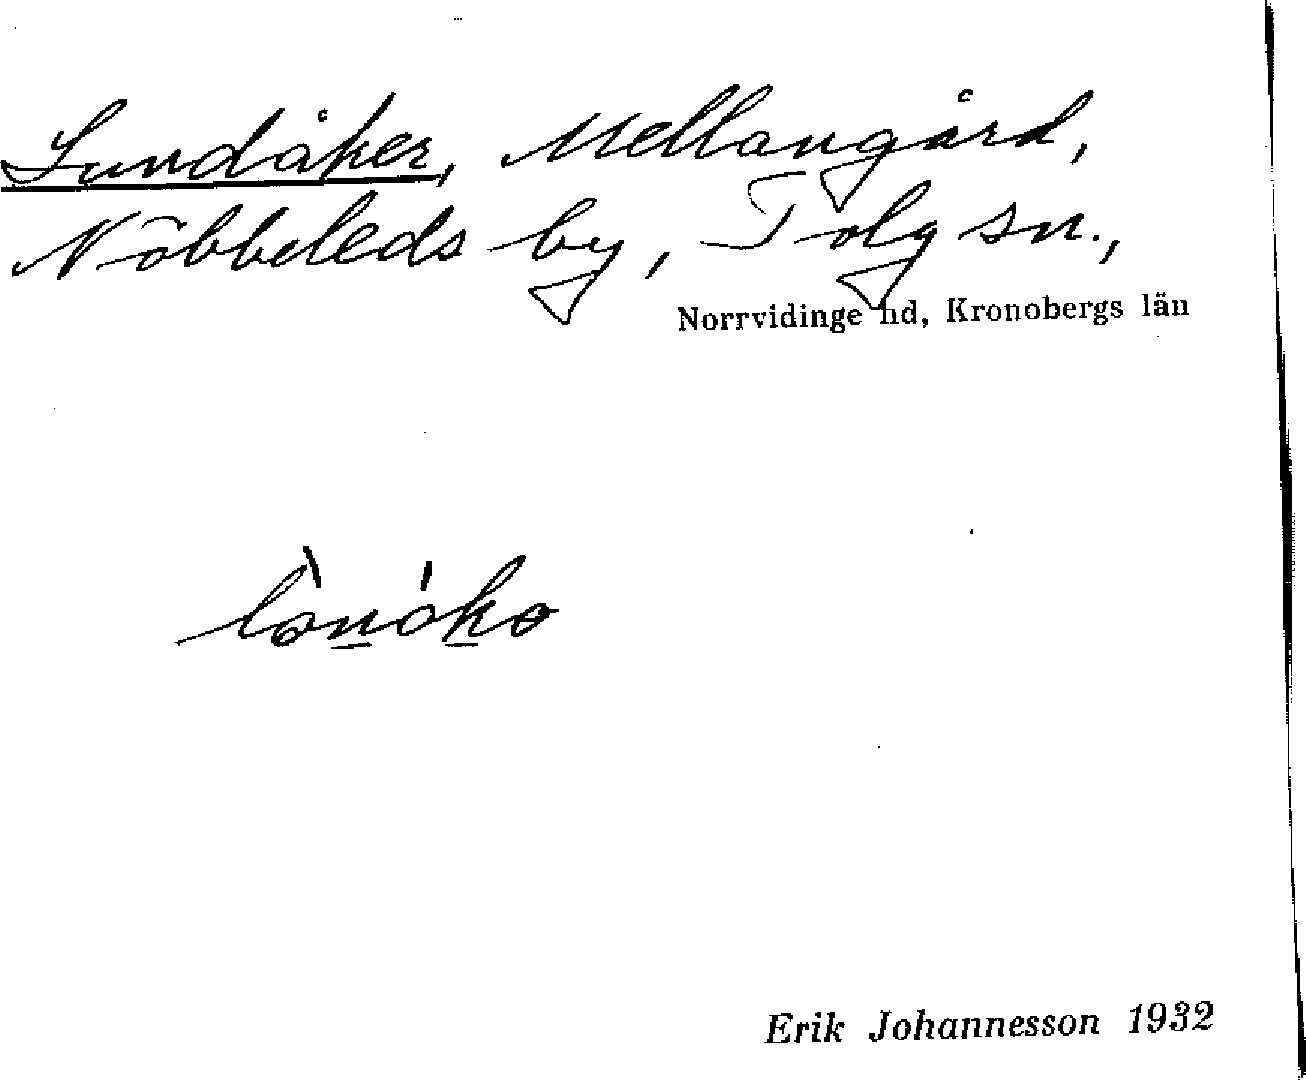 Lundåker, Mellangård,
Nöbbeleds by, Tolg sn.,
Norrvidinge hd, Kronobergs län
Erik Johannesson 1932